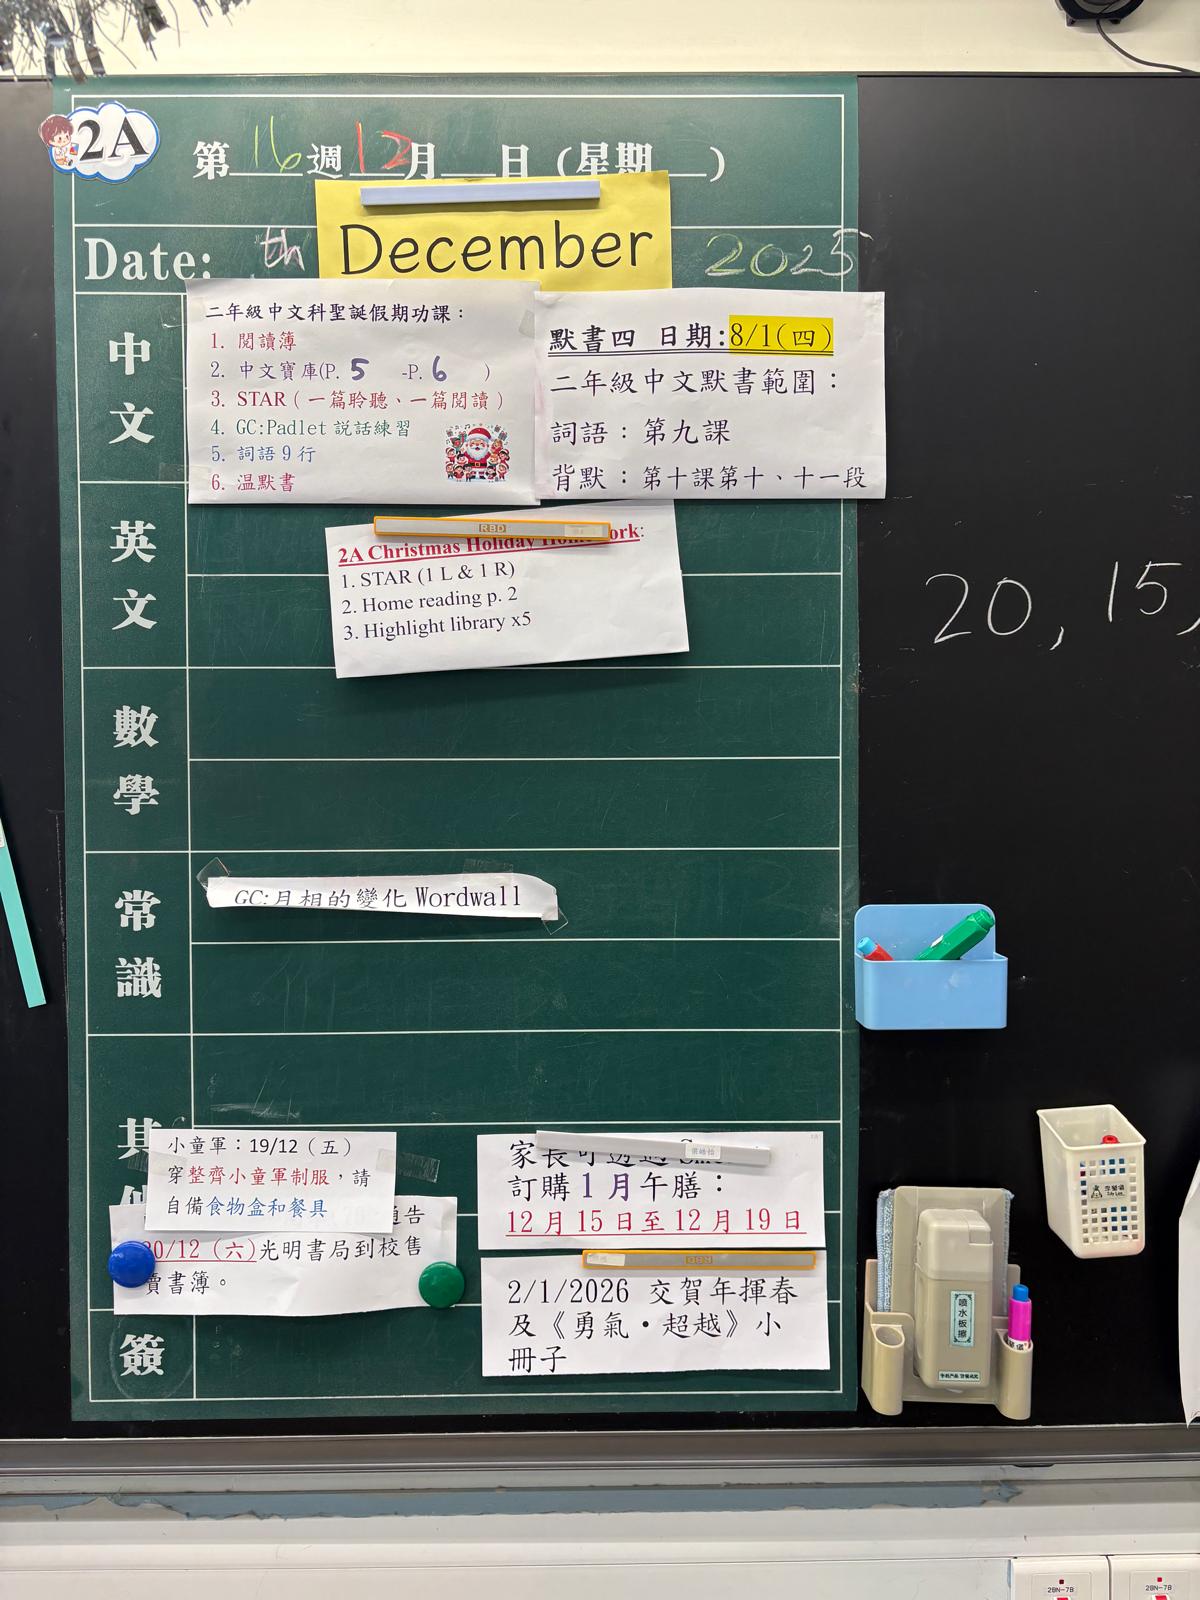 2A
第16週12月 日（星期 ）
Date: th December 2025
中文
二年級中文科聖誕假期功課：
1. 閱讀簿
2. 中文寶庫(P. 5 -P. 6 )
3. STAR（一篇聆聽、一篇閱讀）
4. GC:Padlet 說話練習
5. 詞語 9 行
6. 温默書
默書四 日期:8/1(四)
二年級中文默書範圍：
詞語：第九課
背默：第十課第十、十一段
英文
RBD
2A Christmas Holiday Homework:
1. STAR (1 L & 1 R)
2. Home reading p. 2
3. Highlight library x5
20, 15,
數學
常識
GC:月相的變化 Wordwall
其他
小童軍：19/12（五）
穿整齊小童軍制服，請
自備食物盒和餐具
通告
20/12（六)光明書局到校售
賣書簿。
家長可透過
訂購 1 月午膳：
12 月 15 日至 12 月 19 日
RBD
2/1/2026 交賀年揮春
及《勇氣・超越》小
冊子
簽
噴水板擦
2BN-7B
2BN-7B